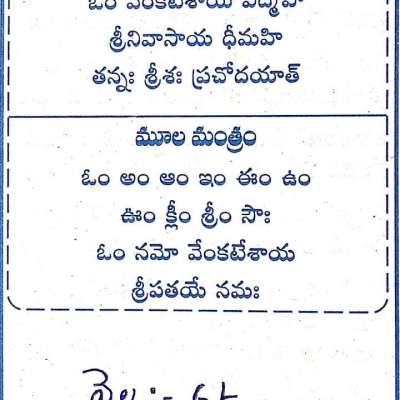 ఓం వేంకటేశాయ విద్మహే
శ్రీనివాసాయ ధీమహి
తన్నః శ్రీశః ప్రచోదయాత్
మూల మంత్రం
ఓం అం ఆం ఇం ఈం ఉం
ఊం క్లీం శ్రీం సౌః
ఓం నమో వేంకటేశాయ
శ్రీపతయే నమః